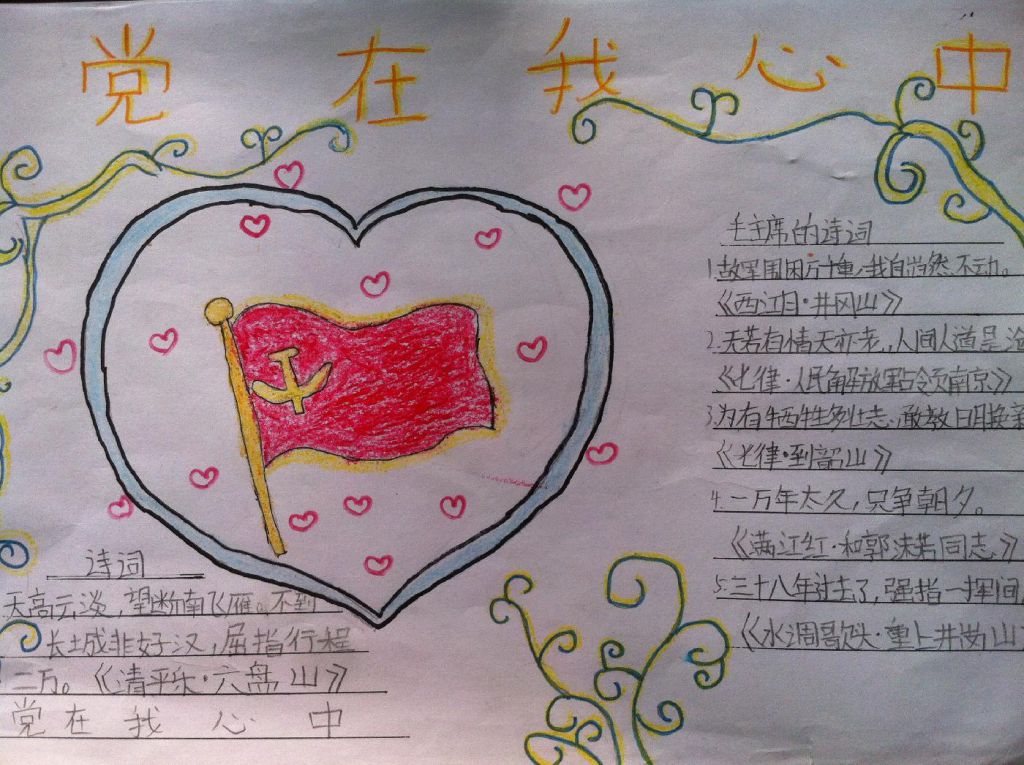 党在我心中
毛主席的诗词
1.敌军围困万千重,我自岿然不动。
《西江月·井冈山》
2.天若有情天亦老,人间人道是沧
《七律·人民解放军占领南京》
3.为有牺牲多壮志,敢教日月换新
《七律·到韶山》
4.一万年太久,只争朝夕。
《满江红·和郭沫若同志》
5.三十八年过去了,强指一挥间,
《水调歌头·重上井冈山
诗词
天高云淡,望断南飞雁。不到
长城非好汉,屈指行程
二万。《清平乐·六盘山》
党在我心中